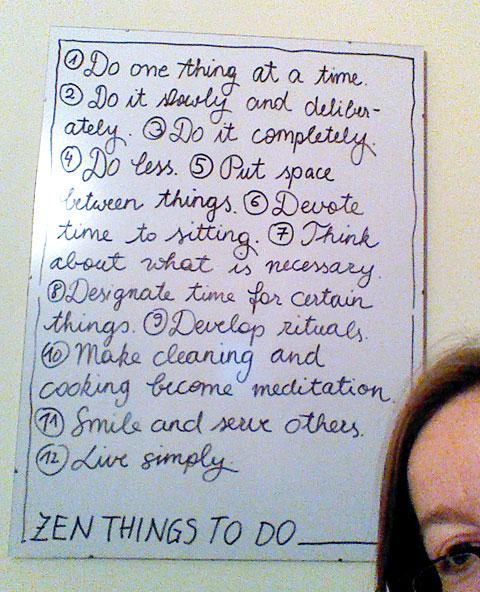 ① Do one thing at a time.
② Do it slowly and deliber-
ately. ③ Do it completely.
④ Do less. ⑤ Put space
between things. ⑥ Devote
time to sitting. ⑦ Think
about what is necessary.
⑧ Designate time for certain
things. ⑨ Develop rituals.
⑩ Make cleaning and
cooking become meditation.
⑪ Smile and serve others.
⑫ Live simply
ZEN THINGS TO DO